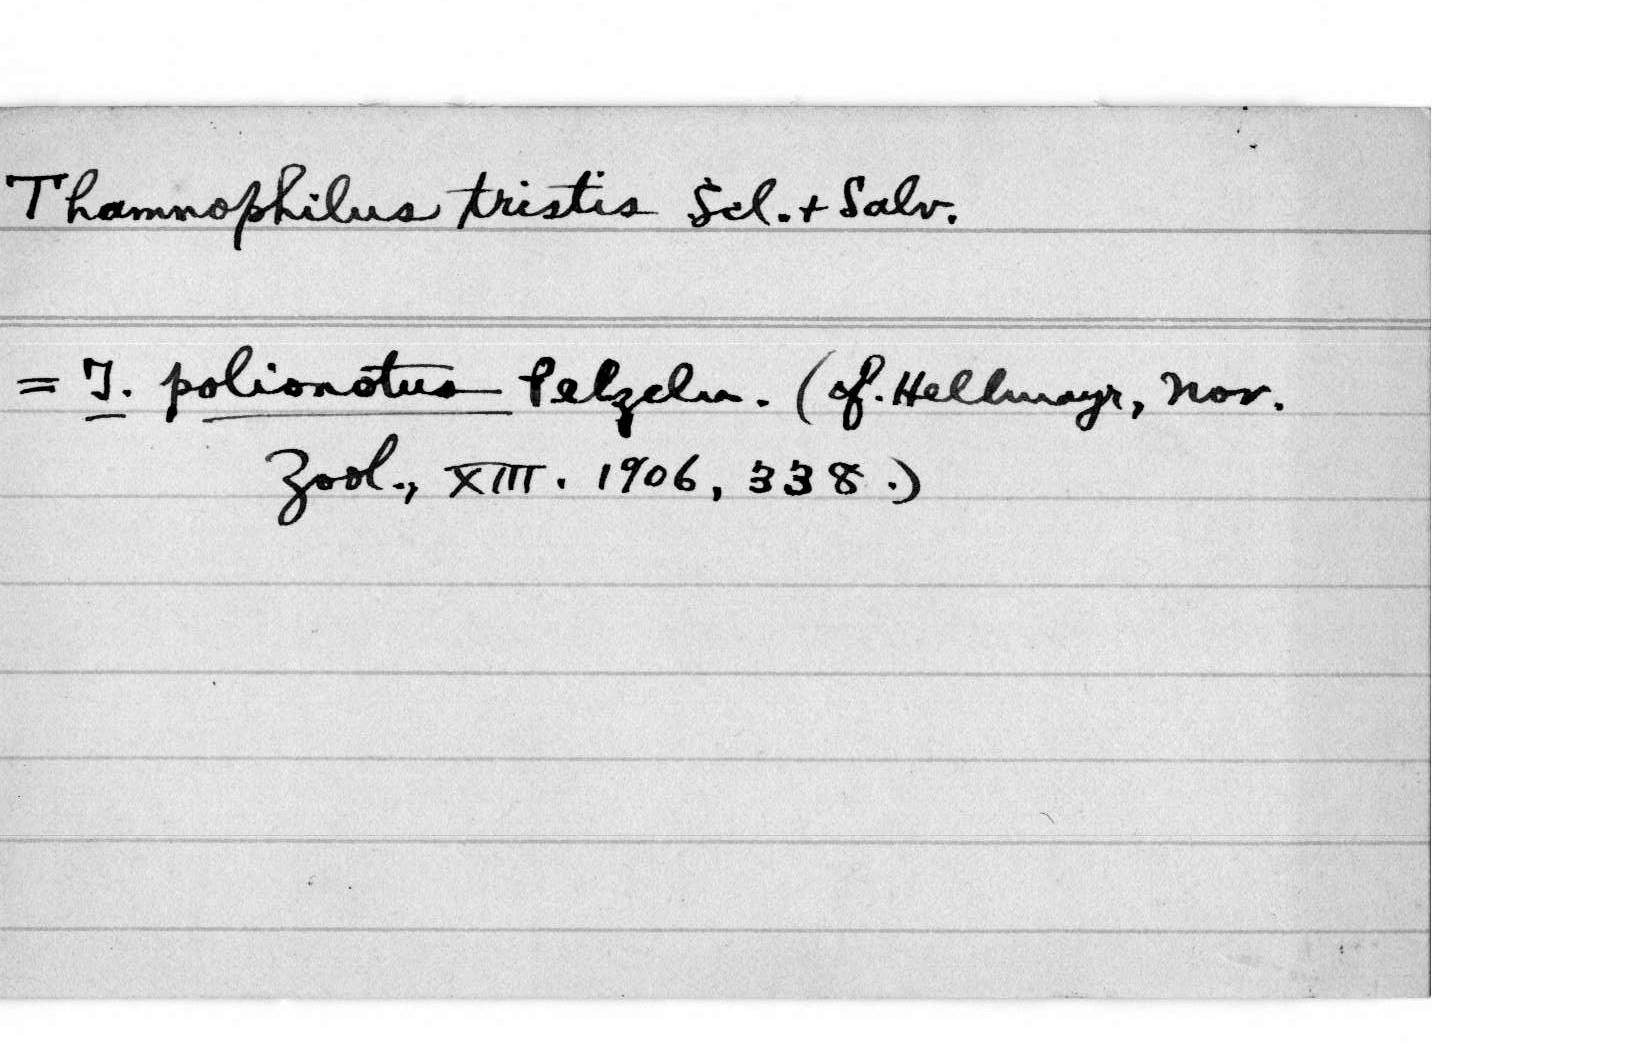 Thamnophilus tristis Scl. + Salv.
= T. polionotus Pelzeln. (cf. Hellmayr, Nov.
Zool., XIII. 1906, 338.)